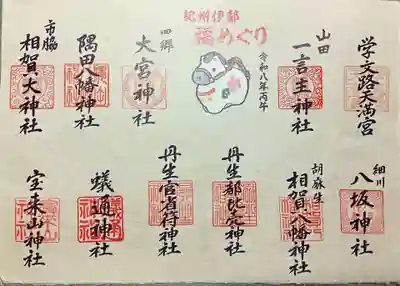 学文路天満宮
山田
一言主神社
紀州伊都
福めぐり
令和八年丙午
四郷
大宮神社
隅田八幡神社
市脇
相賀大神社
細川
八坂神社
胡麻生
相賀八幡神社
丹生都比売神社
丹生官省符神社
蟻通神社
宝来山神社